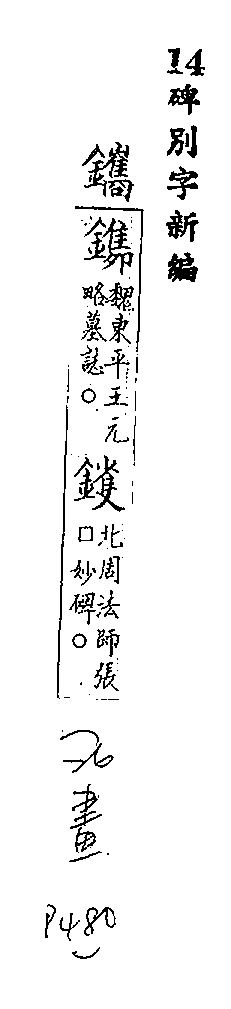 14碑別字新編
鑴
鐫 魏東平王元略墓誌○
鑊 北周法師張□妙碑○
26
畫
P480